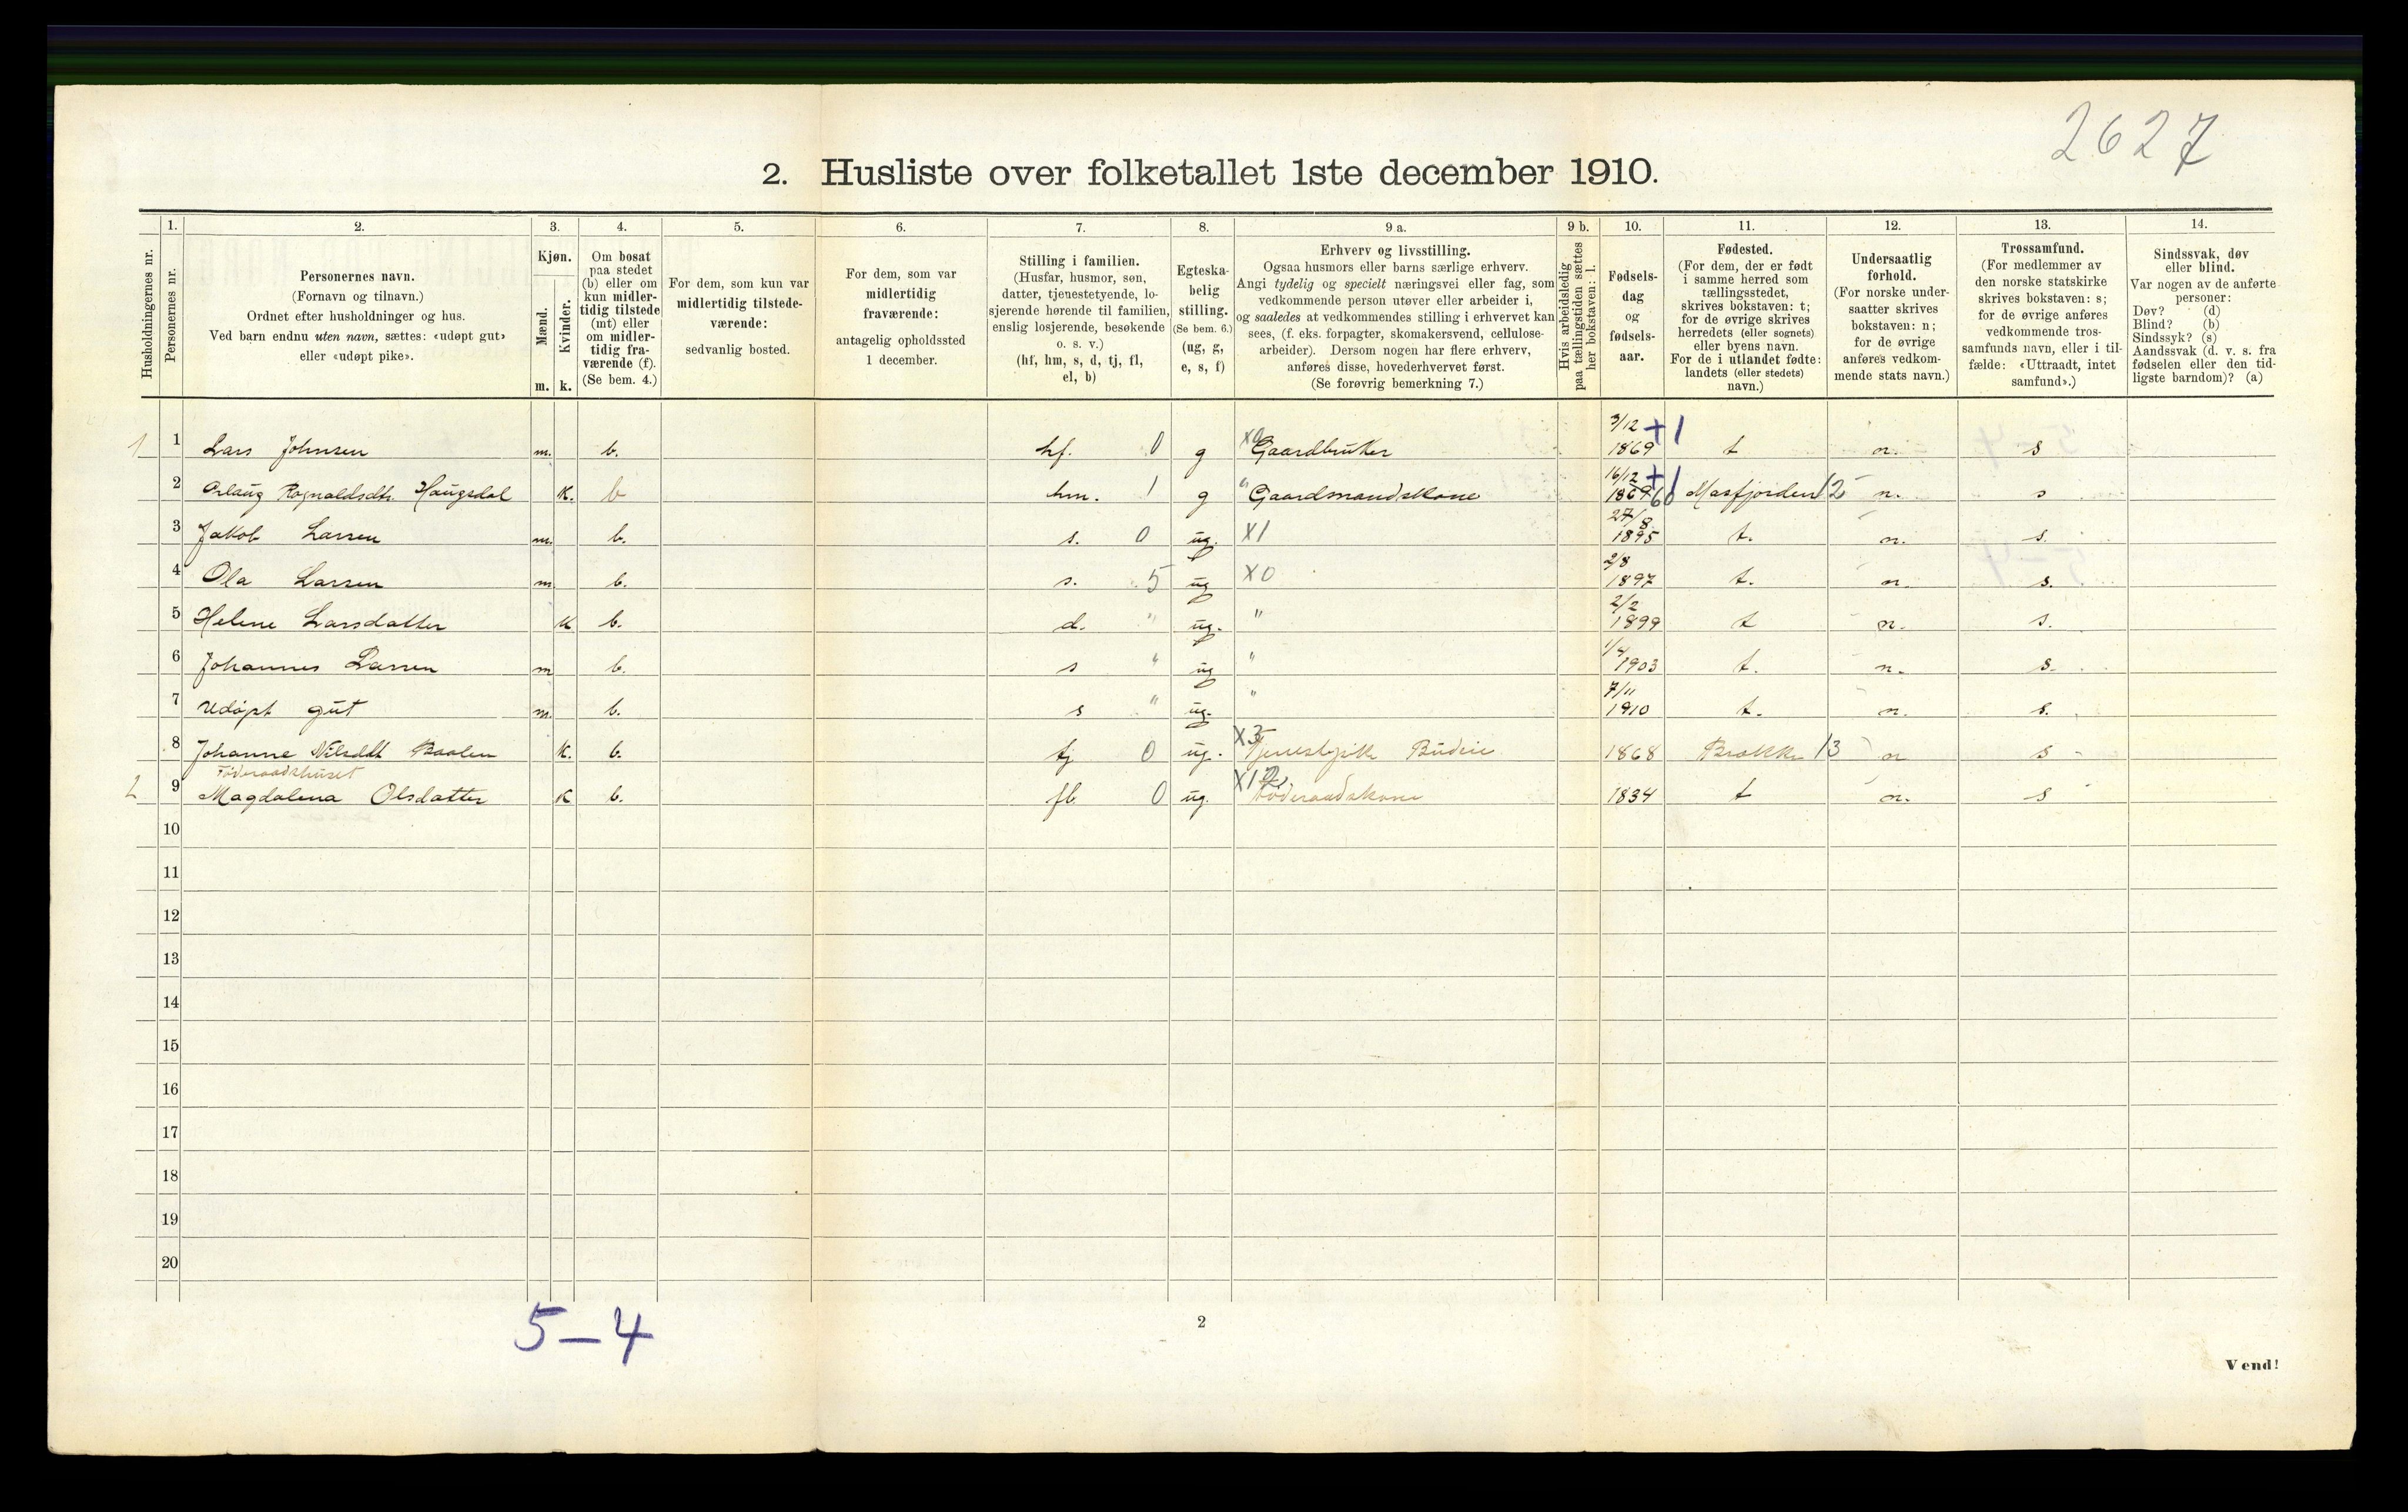 2627
2. Husliste over folketallet 1ste december 1910.
Husholdningernes nr.
1.
Personernes nr.
2.
Personernes navn.
(Fornavn og tilnavn.)
Ordnet efter husholdninger og hus.
Ved barn endnu uten navn, sættes: «udøpt gut»
eller «udøpt pike».
3.
Kjøn.
Mænd.
Kvinder.
m. k.
4.
Om bosat
paa stedet
(b) eller om
kun midler-
tidig tilstede
(mt) eller
om midler-
tidig fra-
værende (f).
(Se bem. 4.)
5.
For dem, som kun var
midlertidig tilstede-
værende:
sedvanlig bosted.
6.
For dem, som var
midlertidig
fraværende:
antagelig opholdssted
1 december.
7.
Stilling i familien.
(Husfar, husmor, søn,
datter, tjenestetyende, lo-
sjerende hørende til familien,
enslig losjerende, besøkende
o. s. v.)
(hf, hm, s, d, tj, fl,
el, b)
8.
Egteska-
belig
stilling.
(Se bem. 6.)
(ug, g,
e, s, f)
9 a.
Erhverv og livsstilling.
Ogsaa husmors eller barns særlige erhverv.
Angi tydelig og specielt næringsvei eller fag, som
vedkommende person utøver eller arbeider i,
og saaledes at vedkommendes stilling i erhvervet kan
sees, (f. eks. forpagter, skomakersvend, cellulose-
arbeider). Dersom nogen har flere erhverv,
anføres disse, hovederhvervet først.
(Se forøvrig bemerkning 7.)
9 b.
Hvis arbeidsledig
paa tællingstiden sættes
her bokstaven: l.
10.
Fødsels-
dag
og
fødsels-
aar.
11.
Fødested.
(For dem, der er født
i samme herred som
tællingsstedet,
skrives bokstaven: t;
for de øvrige skrives
herredets (eller sognets)
eller byens navn.
For de i utlandet fødte:
landets (eller stedets)
navn.)
12.
Undersaatlig
forhold.
(For norske under-
saatter skrives
bokstaven: n;
for de øvrige
anføres vedkom-
mende stats navn.)
13.
Trossamfund.
(For medlemmer av
den norske statskirke
skrives bokstaven: s;
for de øvrige anføres
vedkommende tros-
samfunds navn, eller i til-
fælde: «Uttraadt, intet
samfund».)
14.
Sindssvak, døv
eller blind.
Var nogen av de anførte
personer:
Døv? (d)
Blind? (b)
Sindssyk? (s)
Aandssvak (d. v. s. fra
fødselen eller den tid-
ligste barndom)? (a)
1 1 Lars Johnsen m. b. hf. 0 g X0 Gaardbruker 3/12 1869 +1 t n. s
2 Ragnaldsdtr. Haugsdal K. b hm. 1 g " Gaardmandskone 16/12 +1 Masfjorden 12 n. s
3 Jakob Larsen m. b. s. 0 ug. X1 27/8 1895 t. n. s.
4 Ola Larsen m b. s. 5 ug X0 2/8 1897 t. n. s.
5 Helene Larsdatter K b. d. " ug. " 2/2 1899 t n. s.
6 Johannes Larsen m b. s " ug " 1/4 1903 t. n. s.
7 Udøpt gut m. b. s " ug. " 7/11 1910 t. n. s.
8 Johanne Nilsdtt K. b. tj 0 ug. X3 Tjenestepike Budeie 1868 Brække 13 n s
Føderaadshuset
2 9 Magdalena Olsdatter K b. fl. 0 ug. X12 Føderaadskone 1834 t n. s
10
11
12
13
14
15
16
17
18
19
20
5–4
2
Vend!